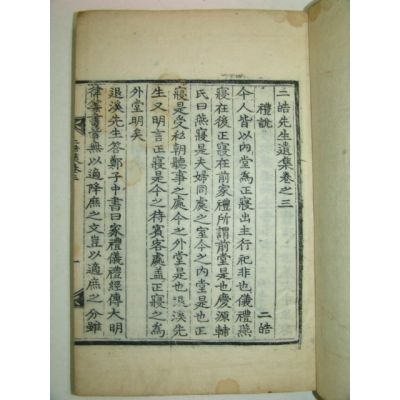 二皓先生遺集卷之三
禮說 二皓
今人皆以內堂爲正寢出主行祀非也儀禮燕
寢在後正寢在前家禮所謂前堂是也慶源輔
氏曰燕寢是夫婦同處之室今之內堂是也正
寢是受私朝聽事之處今之外堂是也退溪先
生又明言正寢是今之待賓客處盖正寢之爲
外堂明矣
退溪先生答鄭子中書曰家禮儀禮經傳大明
律等書皆無以適降庶之文豈以適庶之分雖